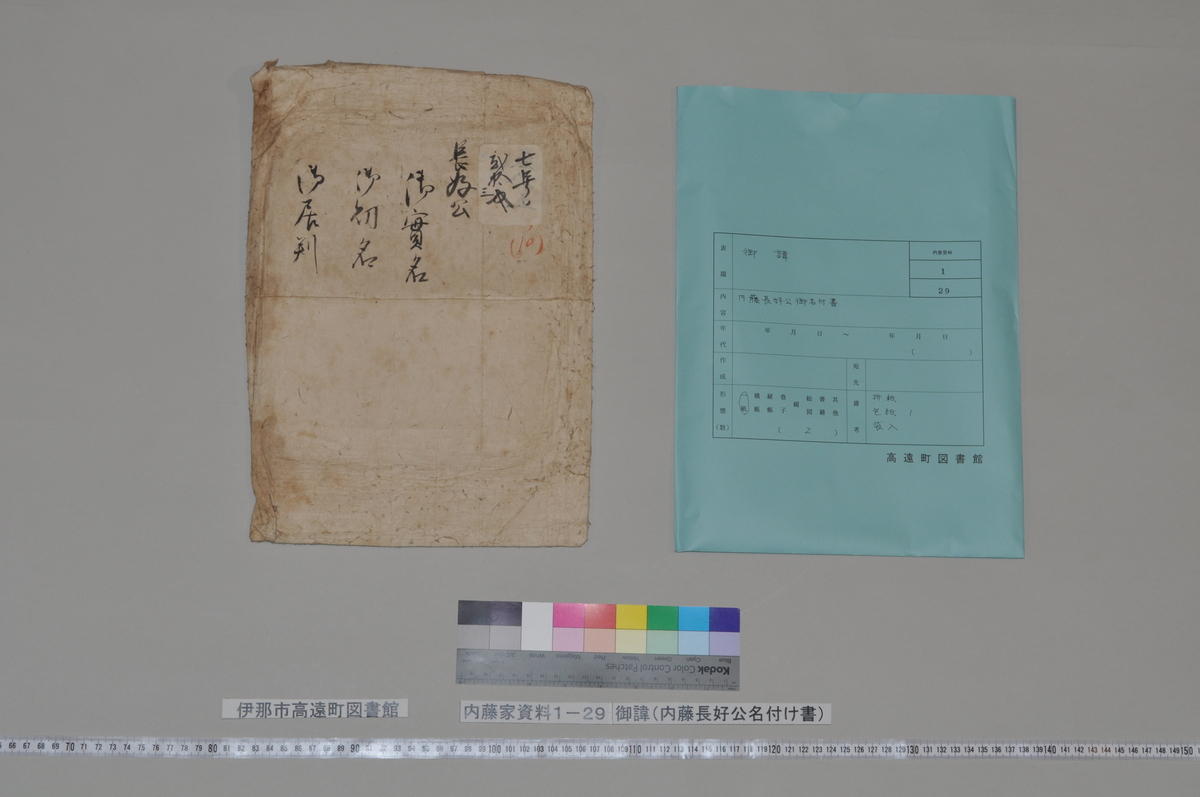 七年
長好公
御實名
御初名
御居判
(16)
表題
御 諱
内藤資料
1
29
内容
内藤長好公御名付書
年代
年 月 日 ～ 年 月 日
( )
作成
宛先
形態(数)
( 2 )
備考
折紙
包紙 1
袋入
高遠町図書館
Kodak Color Control Patches
Blue Cyan Green Yellow Red Magenta White
伊那市高遠町図書館
内藤家資料1－29 御諱(内藤長好公名付け書)
66 67 68 69 70 71 72 73 74 75 76 77 78 79 80 81 82 83 84 85 86 87 88 89 90 91 92 93 94 95 96 97 98 99 100 101 102 103 104 105 106 107 108 109 110 111 112 113 114 115 116 117 118 119 120 121 122 123 124 125 126 127 128 129 130 131 132 133 134 135 136 137 138 139 140 141 142 143 144 145 146 147 148 149 150